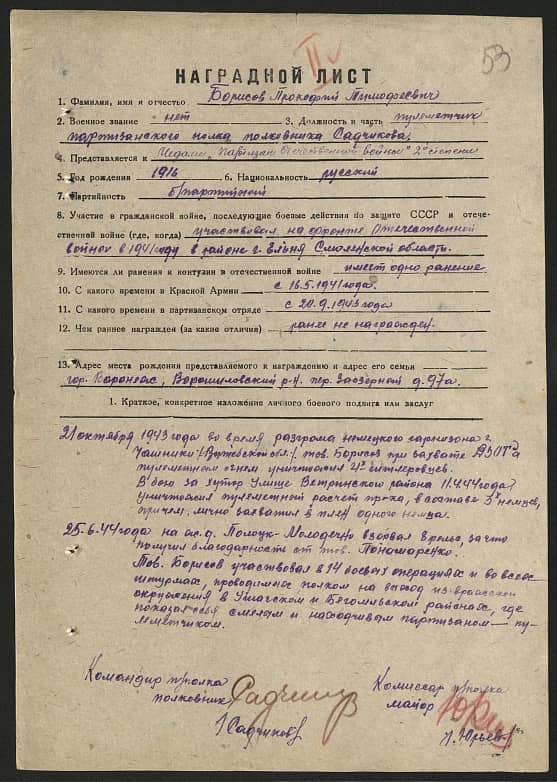 II
53
НАГРАДНОЙ ЛИСТ
1. Фамилия, имя и отчество Борисов Прокофий Тимофеевич
2. Военное звание нет 3. Должность и часть пулеметчик
партизанского полка полковника Садчикова.
4. Представляется к Медали „Партизан Отечественной войны" 2й степени
5. Год рождения 1916 6. Национальность русский
7. Партийность б/партийный
8. Участие в гражданской войне, последующие боевые действия по защите СССР и отече-
ственной войне (где, когда) участвовал на фронте Отечественной
войны в 1941 году в районе г. Ельня Смоленской области.
9. Имеются ли ранения и контузии в отечественной войне имеет одно ранение
10. С какого времени в Красной Армии с 16.5.1941 года.
11. С какого времени в партизанском отряде с 20.9.1943 года
12. Чем ранее награжден (за какие отличия) ранее не награжден.
13. Адрес места рождения представляемого к награждению и адрес его семьи
гор. Ворошиловский р-н. пер. Заозерный д. 97а.
1. Краткое, конкретное изложение личного боевого подвига или заслуг
21 октября 1943 года во время разгрома немецкого гарнизона г.
Чашники /Витебской обл./ тов. Борисов при захвате
пулеметным огнем уничтожил 4х гитлеровцев.
В бою за хутор Ветринского района 11.4.44 года
уничтожил пулеметный расчет врага, в составе 3х немцев,
причем, лично захватил в плен одного немца.
25.6.44 года на ж.д. Полоцк-Молодечно взорвал рельс, за что
получил благодарность от тов. Пономаренко.
Тов. Борисов участвовал в 14 боевых операциях и во всех
штурмах, проводимых полком на выход из вражеского
окружения в Ушачском и Бегомльском районах, где
показал себя смелым и находчивым партизаном — пу-
леметчиком.
Командир п/полка
полковник Садчиков
/Садчиков/
Комиссар п/полка
майор
/Юрьев/